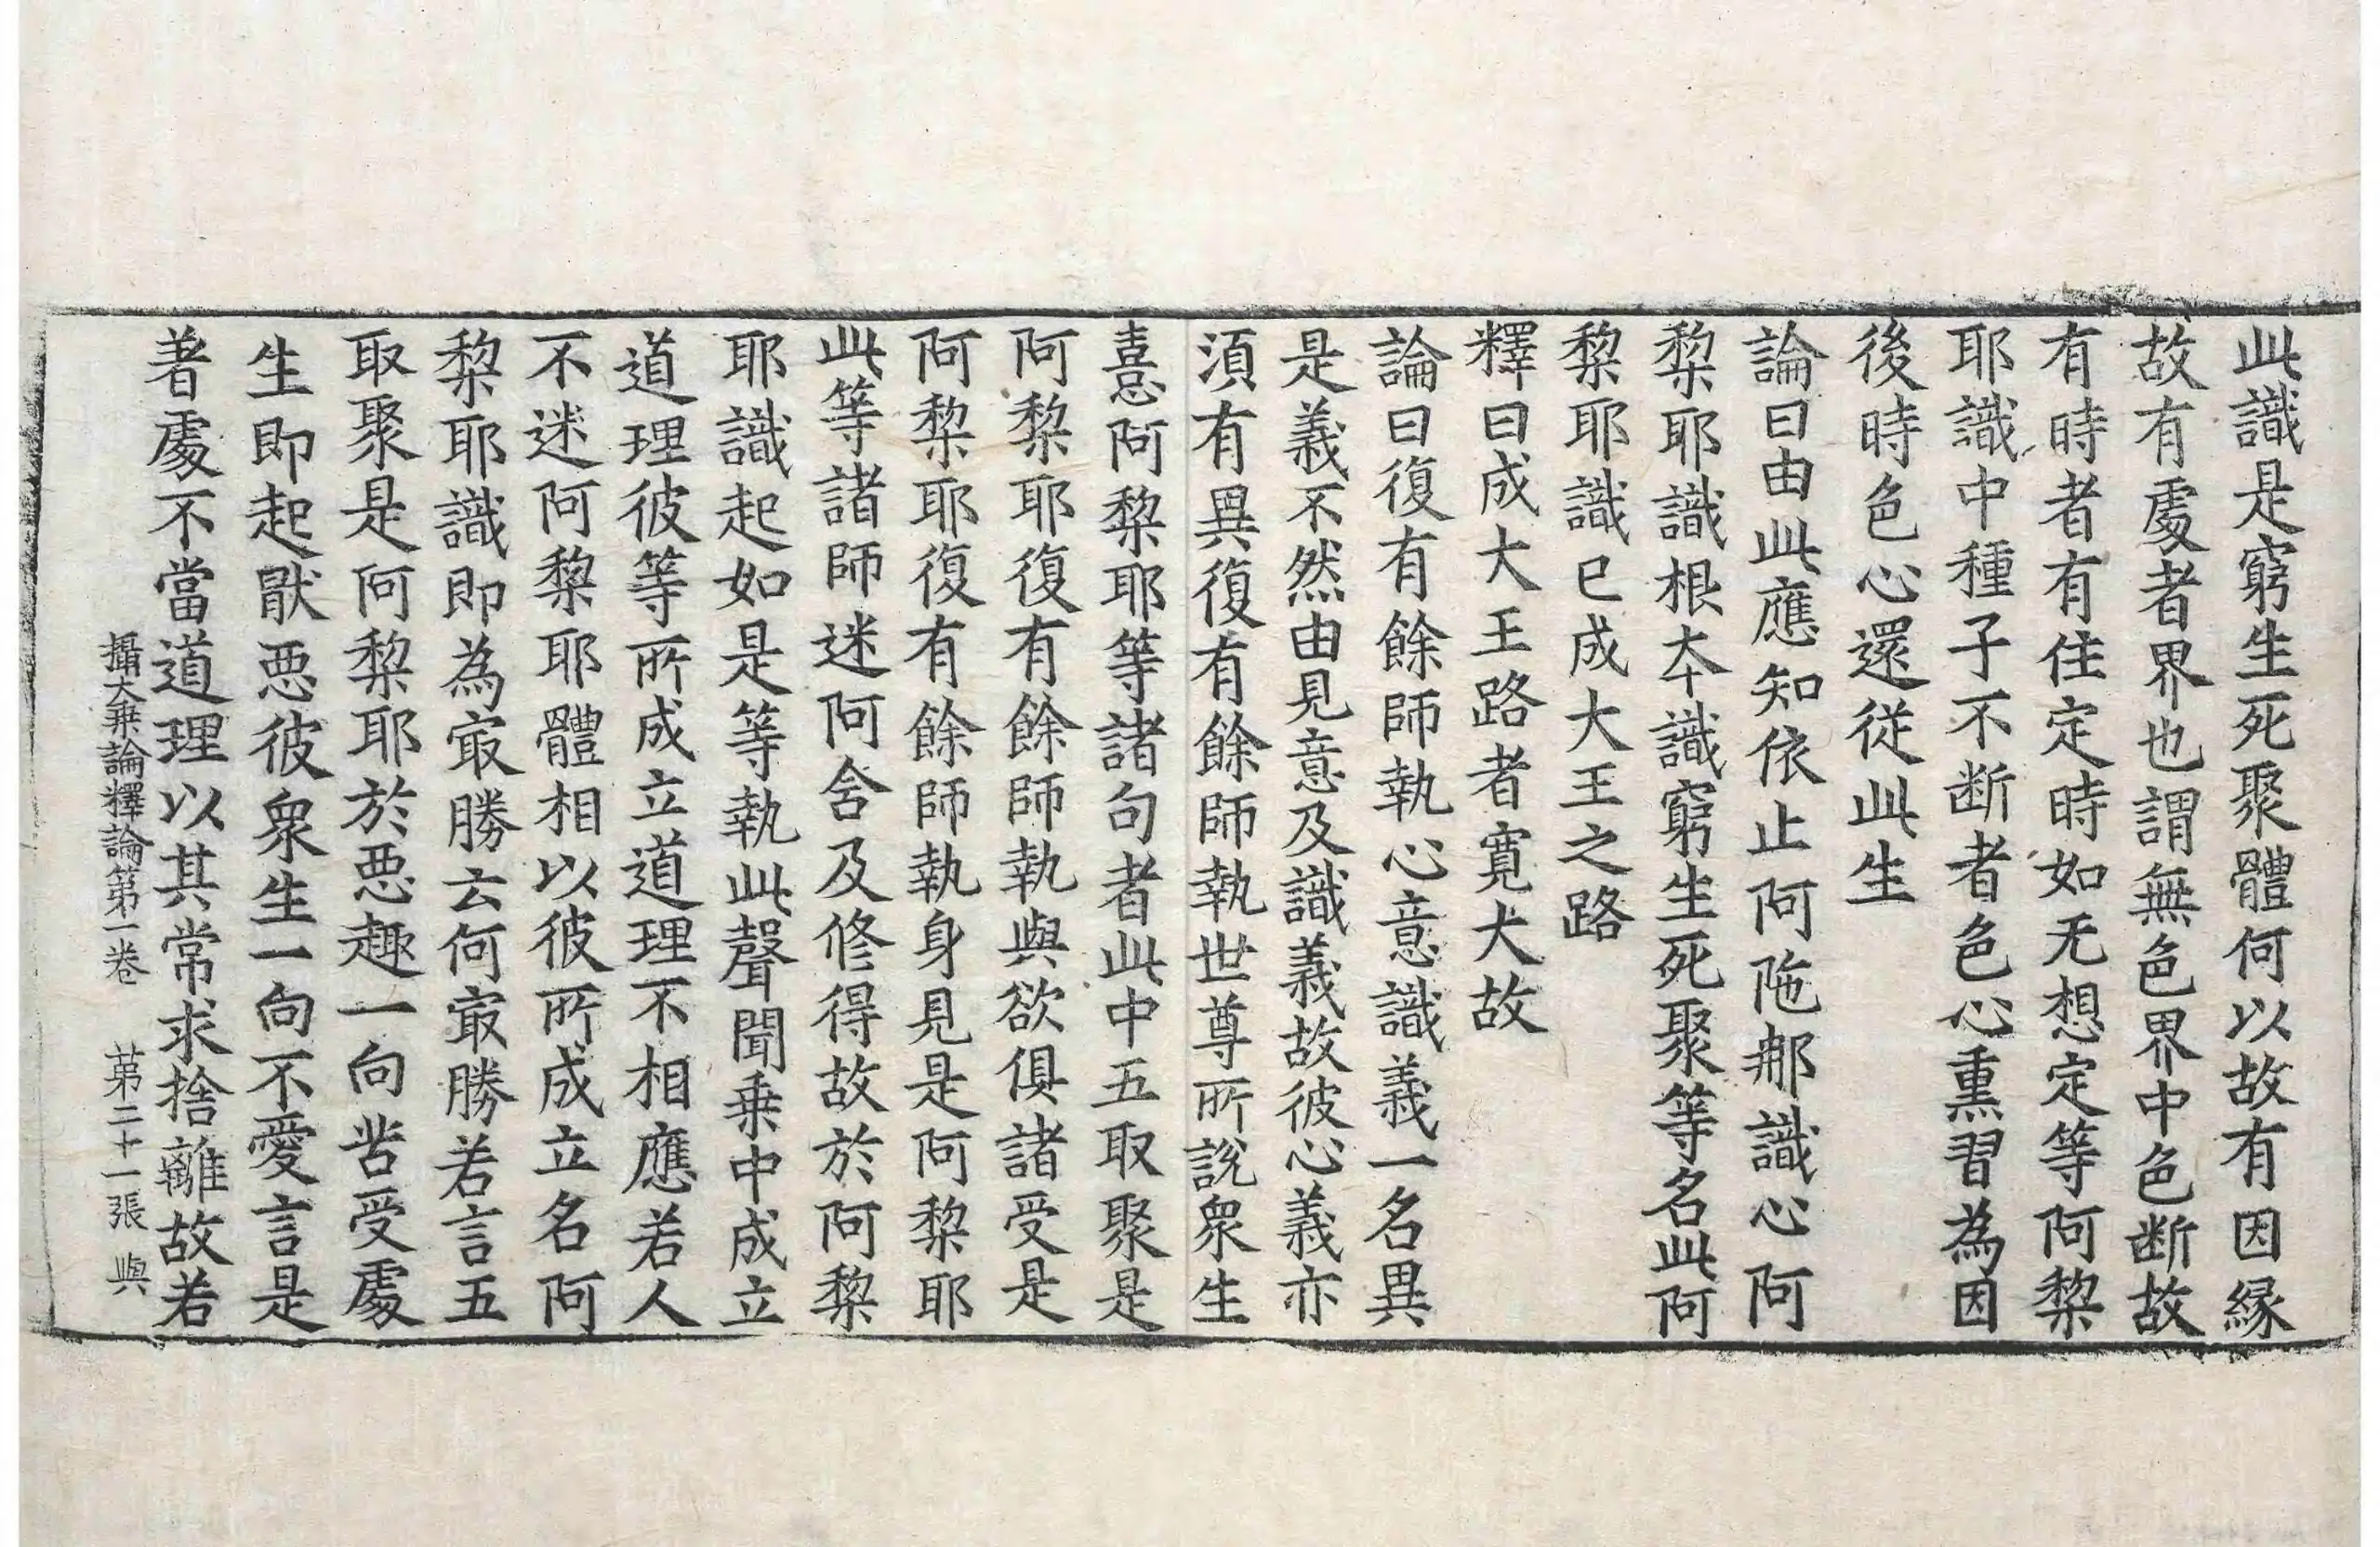 此識是窮生死聚體何以故有因縁
故有處者界也謂無色界中色断故
有時者有住定時如无想定等阿梨
耶識中種子不断者色心熏習為因
後時色心還從此生
論曰由此應知依止阿陁那識心阿
梨耶識根本識窮生死聚等名此阿
梨耶識已成大王之路
釋曰成大王路者寛大故
論曰復有餘師執心意識義一名異
是義不然由見意及識義故彼心義亦
湏有異復有餘師執世尊所說衆生
憙阿梨耶等諸句者此中五取聚是
阿梨耶復有餘師執與欲俱諸受是
阿梨耶復有餘師執身見是阿梨耶
此等諸師迷阿舍及修得故於阿梨
耶識起如是等執此聲聞乗中成立
道理彼等所成立道理不相應若人
不迷阿梨耶體相以彼所成立名阿
梨耶識即為㝡勝云何㝡勝若言五
取聚是阿梨耶於悪趣一向苦受處
生即起猒悪彼衆生一向不愛言是
著處不當道理以其常求捨離故若
攝大乗論釋論第一卷　第二十一張　與